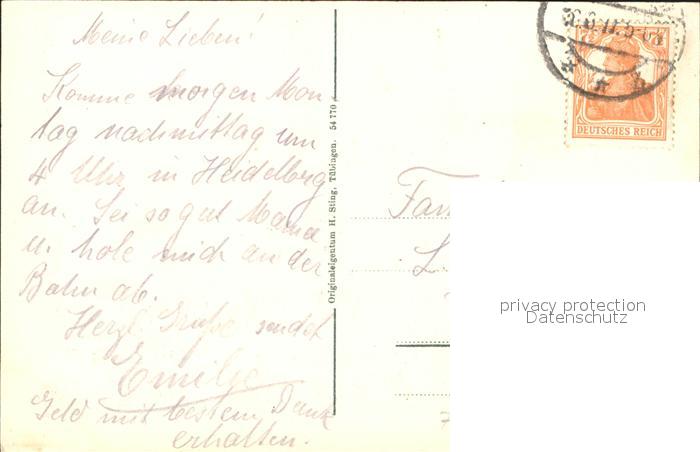 Meine Lieben!
Komme morgen Mon
tag nachmittag um
4 Uhr in Heidelberg
an. Sei so gut Mama
u. hole mich an der
Bahn ab.
Herzl. Grüße sendet
Emilie
Geld mit bestem Dank
erhalten.
Originaleigentum H. Sting, Tübingen. 54 770
DEUTSCHES REICH
Fam
L
privacy protection
Datenschutz